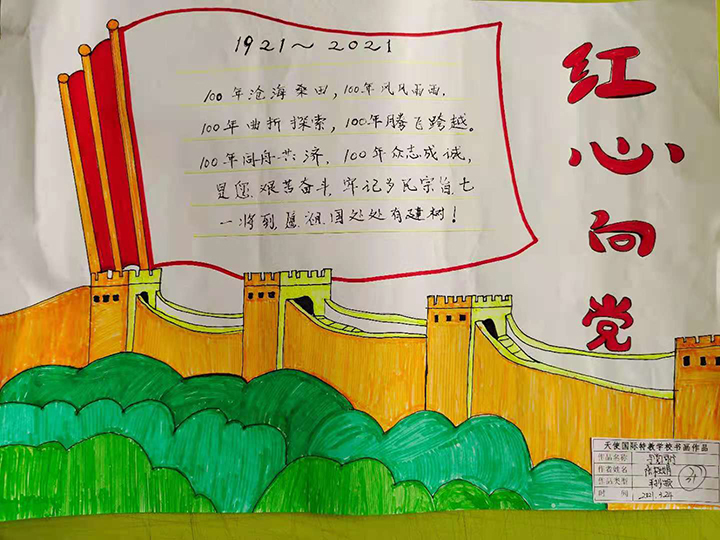 1921～2021
100年沧海桑田，100年风风雨雨，
100年曲折探索，100年腾飞跨越。
100年同舟共济，100年众志成诚，
是您艰苦奋斗，牢记为民宗旨七
一将到，愿祖国处处有建树！
红心向党
天使国际特教学校书画作品
作品名称
作者姓名
作品类型
时间 2021.3.24
37